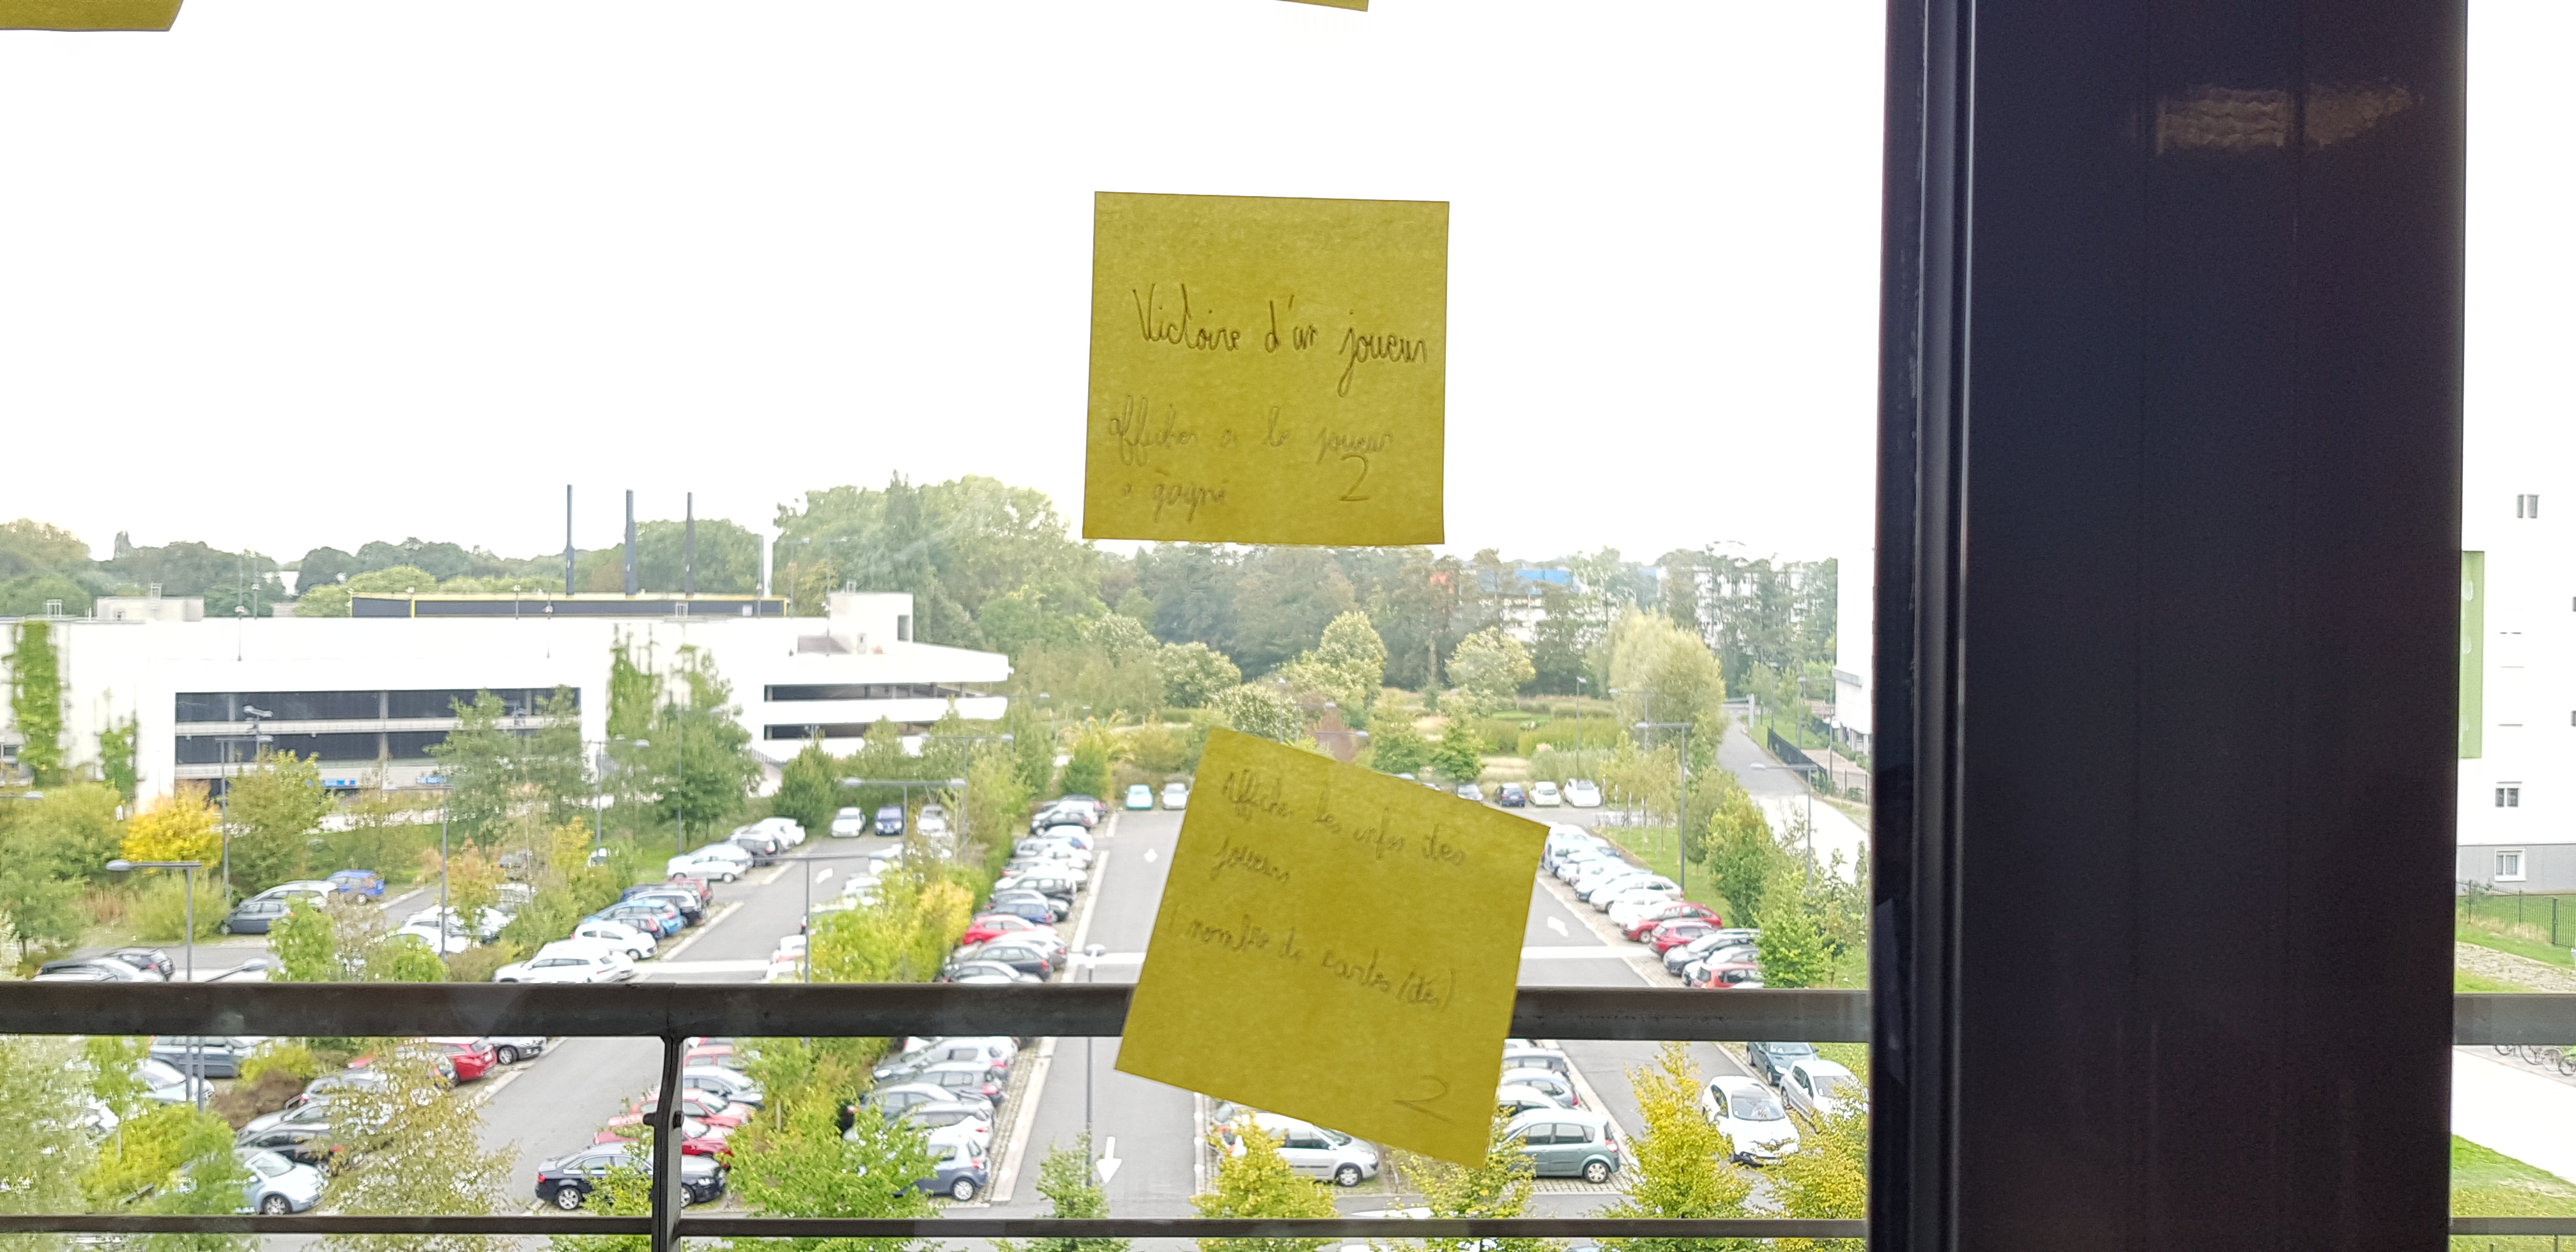 Victoire d'un joueur
afficher si le joueur
a gagné
2
Afficher les infos des
joueurs
(nombre de cartes / dés)
2